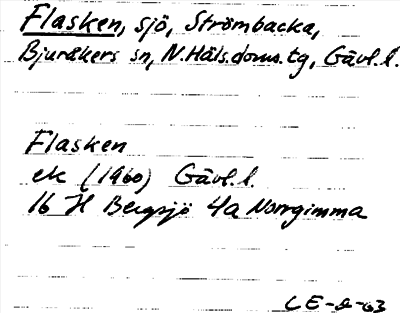 Flasken, sjö, Strömbacka,
Bjuråkers sn, N. Häls. doms. tg, Gävl. l.
Flasken
ek (1960) Gävl. l.
16 H Bergsjö 4a Norrgimma
CE-2-63